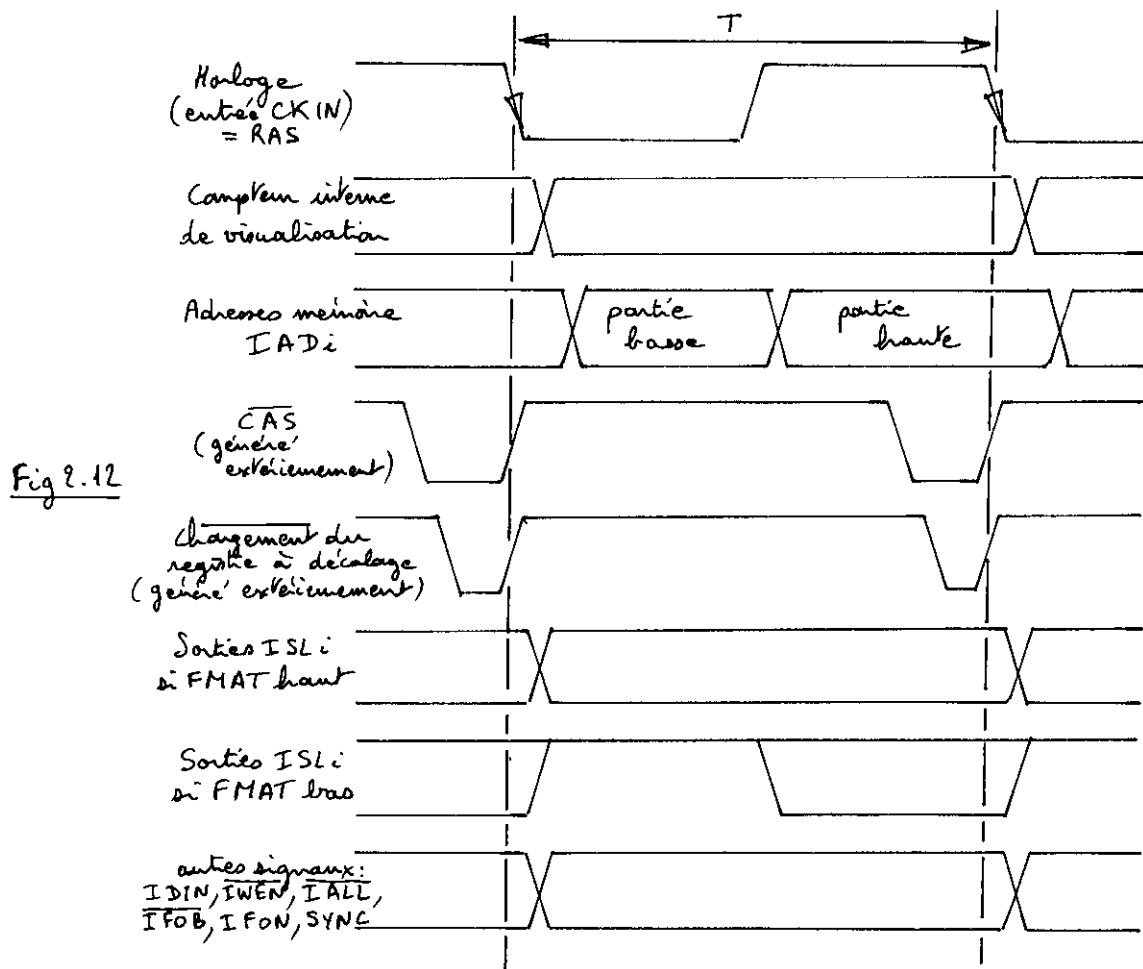 T
Horloge
(entrée CKIN)
= RAS
Compteur interne
de visualisation
Adresses mémoire
IADi
partie
basse
partie
haute
C̅A̅S̅
(généré
extérieurement)
Fig 2.12
C̅h̅a̅r̅g̅e̅m̅e̅n̅t̅ du
registre à décalage
(généré extérieurement)
Sorties ISLi
si FMAT haut
Sorties ISLi
si FMAT bas
autres signaux:
IDIN, I̅W̅E̅N̅, I̅A̅L̅L̅,
I̅F̅O̅B̅, IFON, SYNC